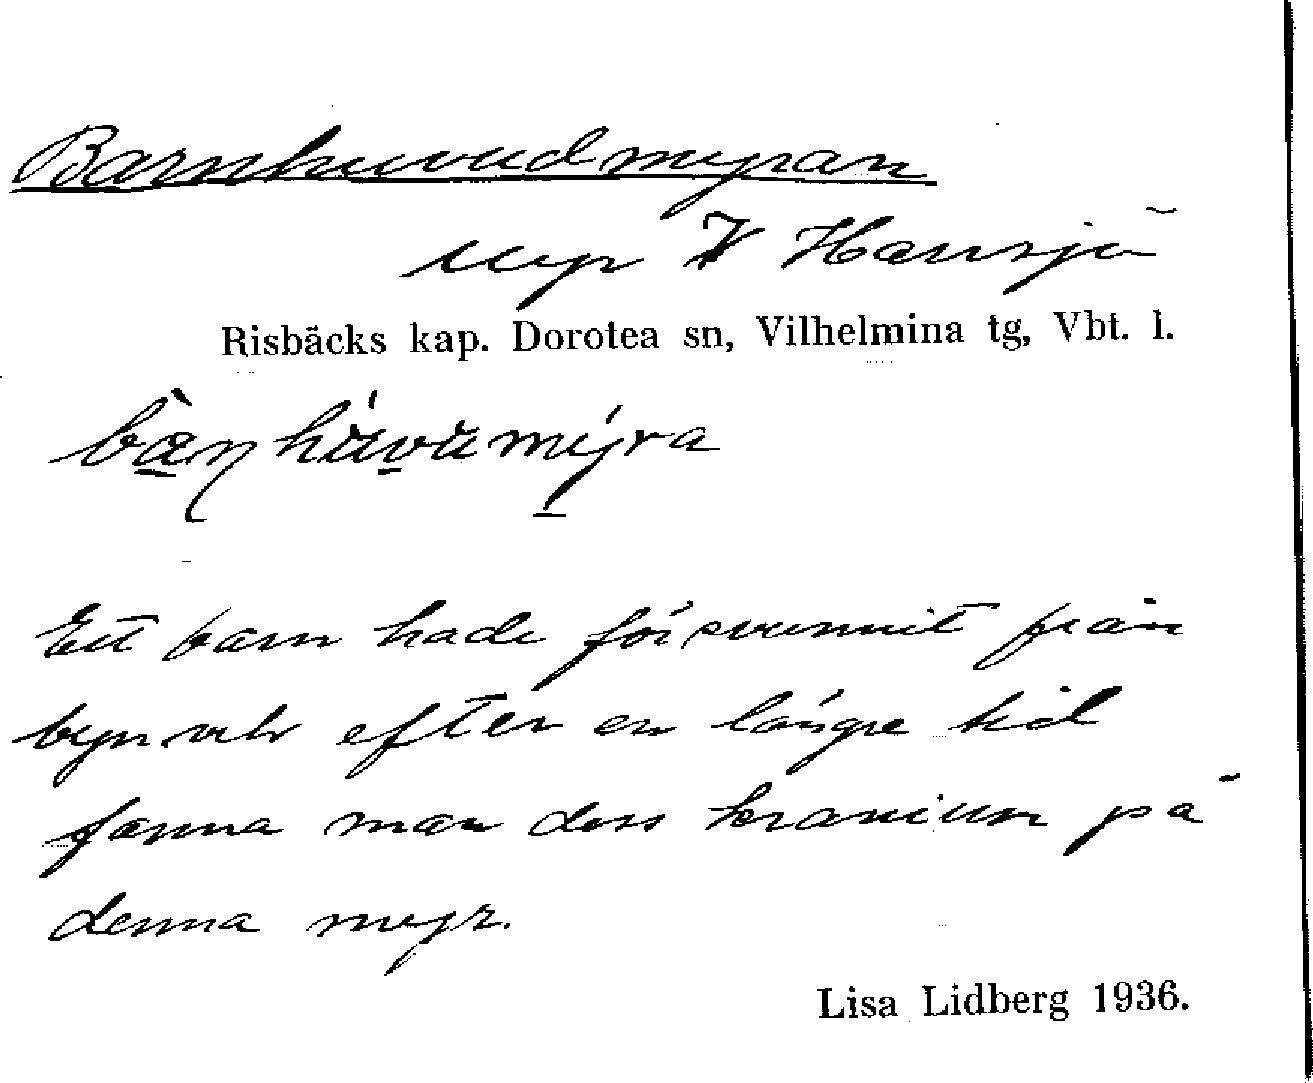 Barnhuvudmyran
myr V Hansjö
Risbäcks kap. Dorotea sn, Vilhelmina tg, Vbt. l.
Ett barn hade försvunnit från
byn och efter en längre tid
fanna man dess kranium på
denna myr.
Lisa Lidberg 1936.